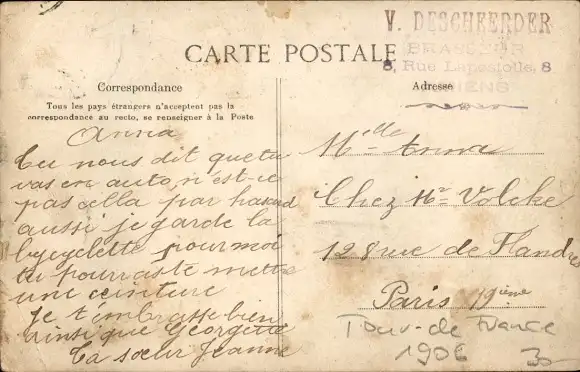 V. DESCHEERDER
BRASSEUR
8, Rue Lapostolle, 8
AMIENS
CARTE POSTALE
Correspondance
Tous les pays étrangers n'acceptent pas la
correspondance au recto, se renseigner à la Poste
Anna
tu nous dit que tu
vas en auto, n'est-ce
pas cella par hasard
aussi je garde la
bycyclette pour moi
tu pourras te mettre
une ceinture
Je t'embrasse bien
ainsi que Georgette
ta sœur Jeanne
Adresse
Mlle Anna
Chez Mr Volcke
128 rue de Flandre
Paris 19ième
Tour de France
1906